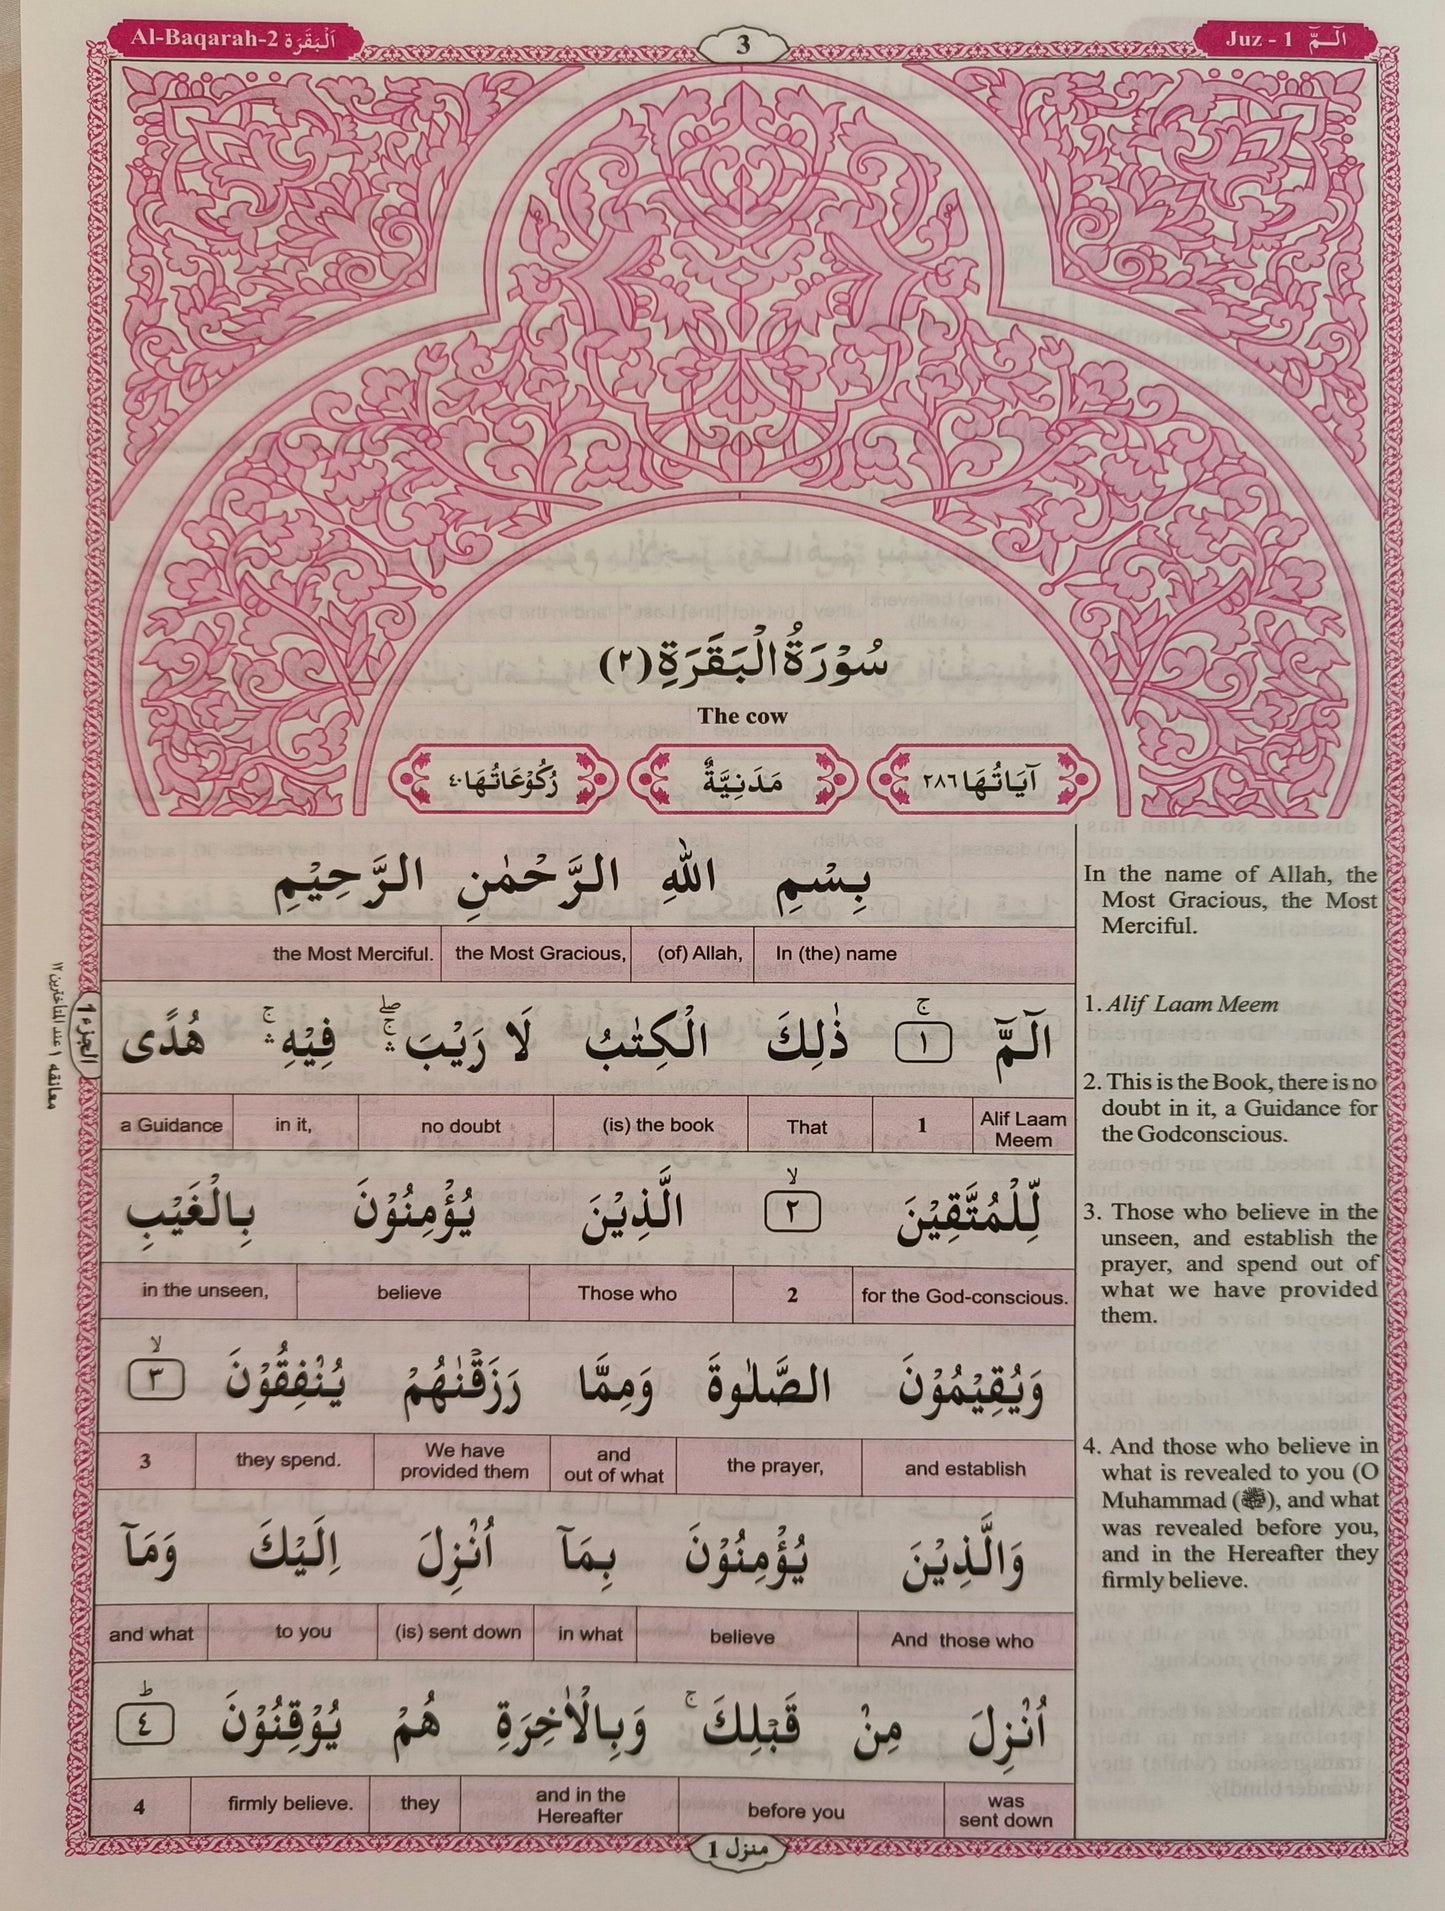 Al-Baqarah-2 اَلْبَقَرَة
3
Juz - 1 الٓـمّٓ
سُوْرَةُ الْبَقَرَةِ (٢)
The cow
آيَاتُـهَا ٢٨٦
مَدَنِيَّةٌ
رُكُوْعَاتُهَا ٤٠
بِسْمِ اللّٰهِ الرَّحْمٰنِ الرَّحِيْمِ
In (the) name (of) Allah, the Most Gracious, the Most Merciful.
الٓمّٓ ۚ ١ ذٰلِكَ الْكِتٰبُ لَا رَيْبَ ۛۖۚ فِيْهِ ۛۚ هُدًى
Alif Laam
Meem
1 That (is) the book no doubt in it, a Guidance
لِّلْمُتَّقِيْنَ ۙ ٢ الَّذِيْنَ يُؤْمِنُوْنَ بِالْغَيْبِ
for the God-conscious. 2 Those who believe in the unseen,
وَيُقِيْمُوْنَ الصَّلٰوةَ وَمِمَّا رَزَقْنٰهُمْ يُنْفِقُوْنَ ۙ ٣
and establish the prayer, and
out of what
We have
provided them
they spend. 3
وَالَّذِيْنَ يُؤْمِنُوْنَ بِمَآ اُنْزِلَ اِلَيْكَ وَمَآ
And those who believe in what (is) sent down to you and what
اُنْزِلَ مِنْ قَبْلِكَ ۚ وَبِالْاٰخِرَةِ هُمْ يُوْقِنُوْنَ ؕ ٤
was
sent down
before you
and in the
Hereafter
they firmly believe. 4
In the name of Allah, the
Most Gracious, the Most
Merciful.
1. Alif Laam Meem
2. This is the Book, there is no
doubt in it, a Guidance for
the Godconscious.
3. Those who believe in the
unseen, and establish the
prayer, and spend out of
what we have provided
them.
4. And those who believe in
what is revealed to you (O
Muhammad (ﷺ), and what
was revealed before you,
and in the Hereafter they
firmly believe.
الجزء 1
معانقه ١ عند المتأخرين ١٢
منزل 1